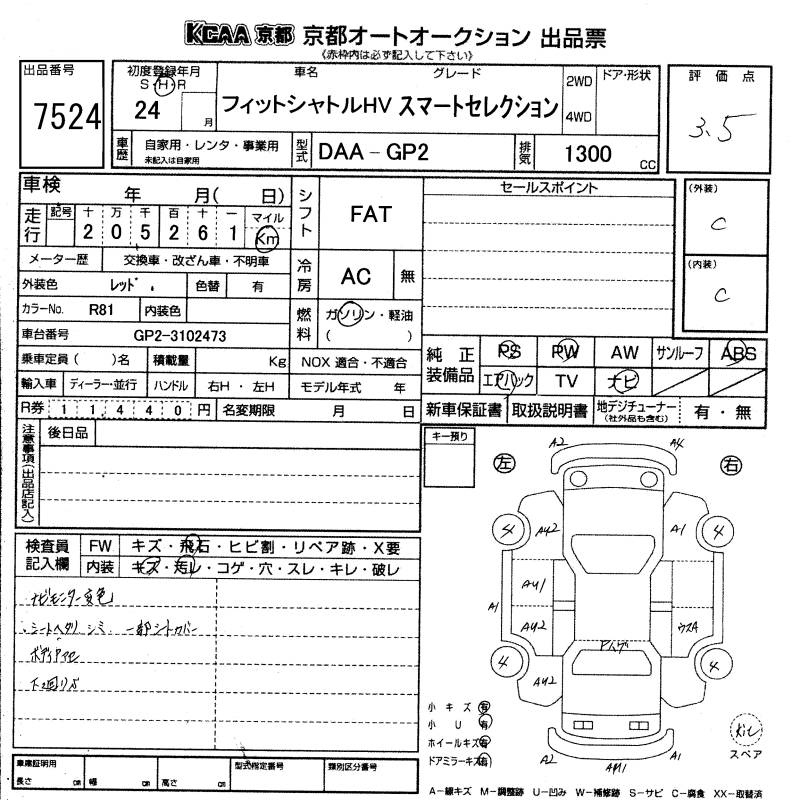 KCAA 京都 京都オートオークション 出品票
《赤枠内は必ず記入して下さい》
出品番号
7524
初度登録年月
S・H・R
24 月
車名 グレード
フィットシャトルHV スマートセレクション
2WD
4WD
ドア・形状
評価点
3.5
車歴
自家用・レンタ・事業用
未記入は自家用
型式
DAA-GP2
排気
1300 CC
車検 年 月( 日)
走行
記号 十 万 千 百 十 一 マイル
2 0 5 2 6 1 Km
メーター歴 交換車・改ざん車・不明車
外装色 レッド 色替 有
カラーNo. R81 内装色
車台番号 GP2-3102473
乗車定員( )名 積載量 Kg
輸入車 ディーラー・並行 ハンドル 右H・左H
R券 1 1,4 4 0 円 名変期限 月 日
シフト
FAT
冷房
AC 無
燃料
ガソリン・軽油
( )
NOX 適合・不適合
モデル年式 年
セールスポイント
(外装)
C
(内装)
C
純正装備品
PS PW AW サンルーフ ABS
エアバック TV ナビ
新車保証書 取扱説明書 地デジチューナー
(社外品も含む)
有・無
注意事項(出品店記入)
後日品
キー預り
検査員記入欄
FW キズ・飛石・ヒビ割・リペア跡・X要
内装 キズ・汚レ・コゲ・穴・スレ・キレ・破レ
ナビモニター変色
シートヘタリ シミ 一部シートカバー
左 右
A2 A4
4 A42 A1 4
A41
A1
A42 ウスA
4 A42 4
A2 A1
小キズ 有
小U 有
ホイールキズ 有
ドアミラーキズ 有
スペア
車庫証明用
長さ cm 幅 cm 高さ cm
型式指定番号
類別区分番号
A-線キズ M-調整跡 U-凹み W-補修跡 S-サビ C-腐食 XX-取替済